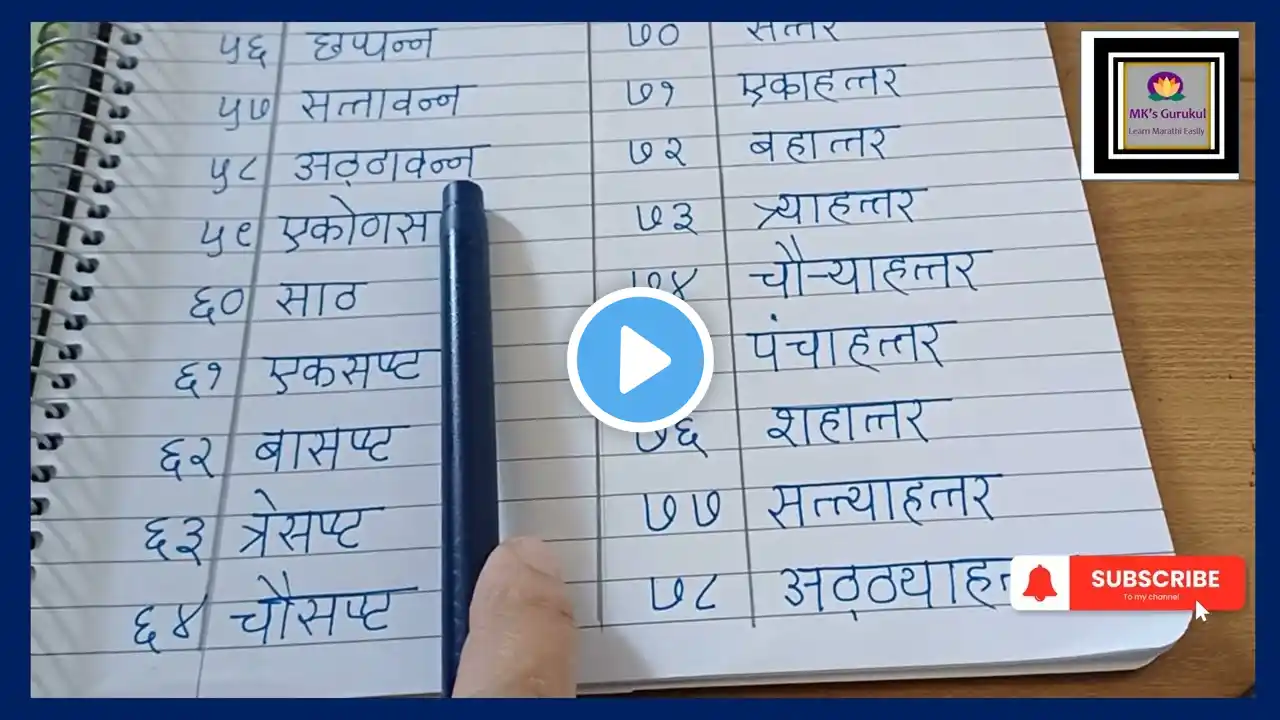 ५६ छप्पन्न
५७ सत्तावन्न
५८ अठ्ठावन्न
५९ एकोणसा
६० साठ
६१ एकसष्ट
६२ बासष्ट
६३ त्रेसष्ट
६४ चौसष्ट
७० सत्तर
७१ एकाहत्तर
७२ बहात्तर
७३ त्र्याहत्तर
७४ चौऱ्याहत्तर
पंचाहत्तर
७६ शहात्तर
७७ सत्त्याहत्तर
७८ अठ्ठ्याहत्
MK's Gurukul
Learn Marathi Easily
SUBSCRIBE
To my channel